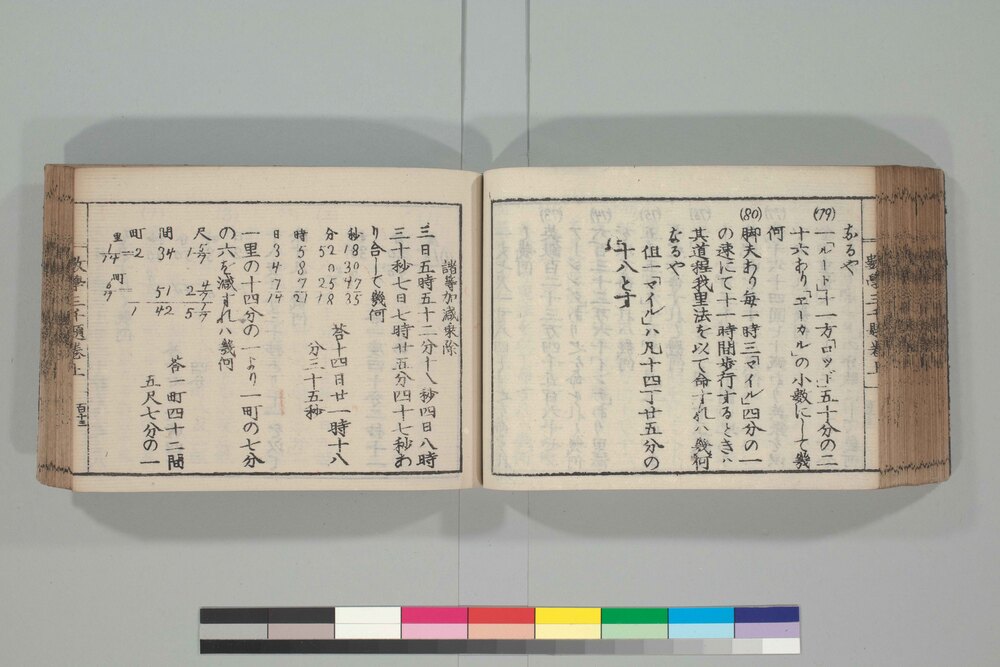 なるや
(79) 一「ルード」十一方「ロッド」五十分の二
十六あり「エーカル」の小数にして幾
何
(80) 脚夫あり毎一時三「マイル」四分の一
の速にて十一時間歩行するときハ
其道程我里法を以て命ずれハ幾何
なるや
但一「マイル」ハ凡十四丁廿五分の
十八とす
諸等加減乗除
三日五時五十二分十八秒四日八時
三十秒七日七時廿五分四十七秒あ
り合して幾何
秒 18 30 47 35
分 52 0 25 18
時 5 8 7 21
日 3 4 7 14
答十四日廿一時十八
分三十五秒
一里の十四分の一より一町の七分
の六を減ずれハ幾何
尺 1 5/7 2 4/7 5 1/7
間 34 51 42
町 2 1
里 1/14 町 6/7
答一町四十二間
五尺七分の一
數學三千題卷上
百十三